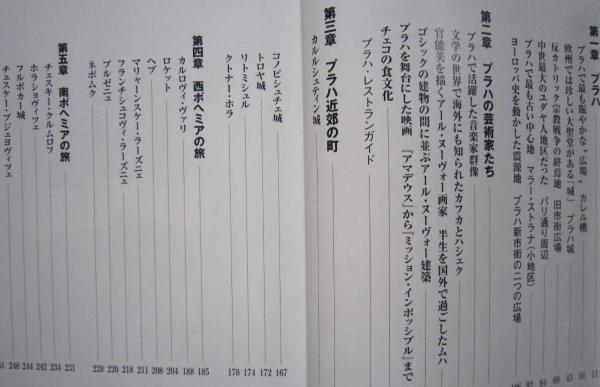 第一章 プラハ 11
プラハで最も賑やかな〝広場〟 カレル橋 16
欧州では珍しい大聖堂がある「城」 プラハ城
反カトリック宗教戦争の終焉地 旧市街広場 69
中世最大のユダヤ人地区だった パリ通り周辺
プラハで最も古い中心地 マラー・ストラナ(小地区)
ヨーロッパ史を動かした震源地 プラハ新市街の二つの広場
第二章 プラハの芸術家たち
プラハで活躍した音楽家群像
文学の世界で海外にも知られたカフカとハシェク
官能美を描くアール・ヌーヴォー画家 半生を国外で過ごしたムハ
ゴシックの建物の間に並ぶアール・ヌーヴォー建築
プラハを舞台にした映画 『アマデウス』から『ミッション・インポッシブル』まで
チェコの食文化
プラハ・レストランガイド
第三章 プラハ近郊の町
カルルシュティン城
コノピシュチェ城 167
トロヤ城 172
リトミシュル 174
クトナー・ホラ 178
第四章 西ボヘミアの旅 185
カルロヴィ・ヴァリ 188
ロケット 204
ヘプ 208
マリャーンスケー・ラーズニェ 211
フランチシュコヴィ・ラーズニェ 218
プルゼニュ 220
ネポムク 228
第五章 南ボヘミアの旅 231
チェスキー・クルムロフ 234
ホラショヴィツェ 242
フルボカー城 244
チェスケー・ブジェヨヴィツェ 248